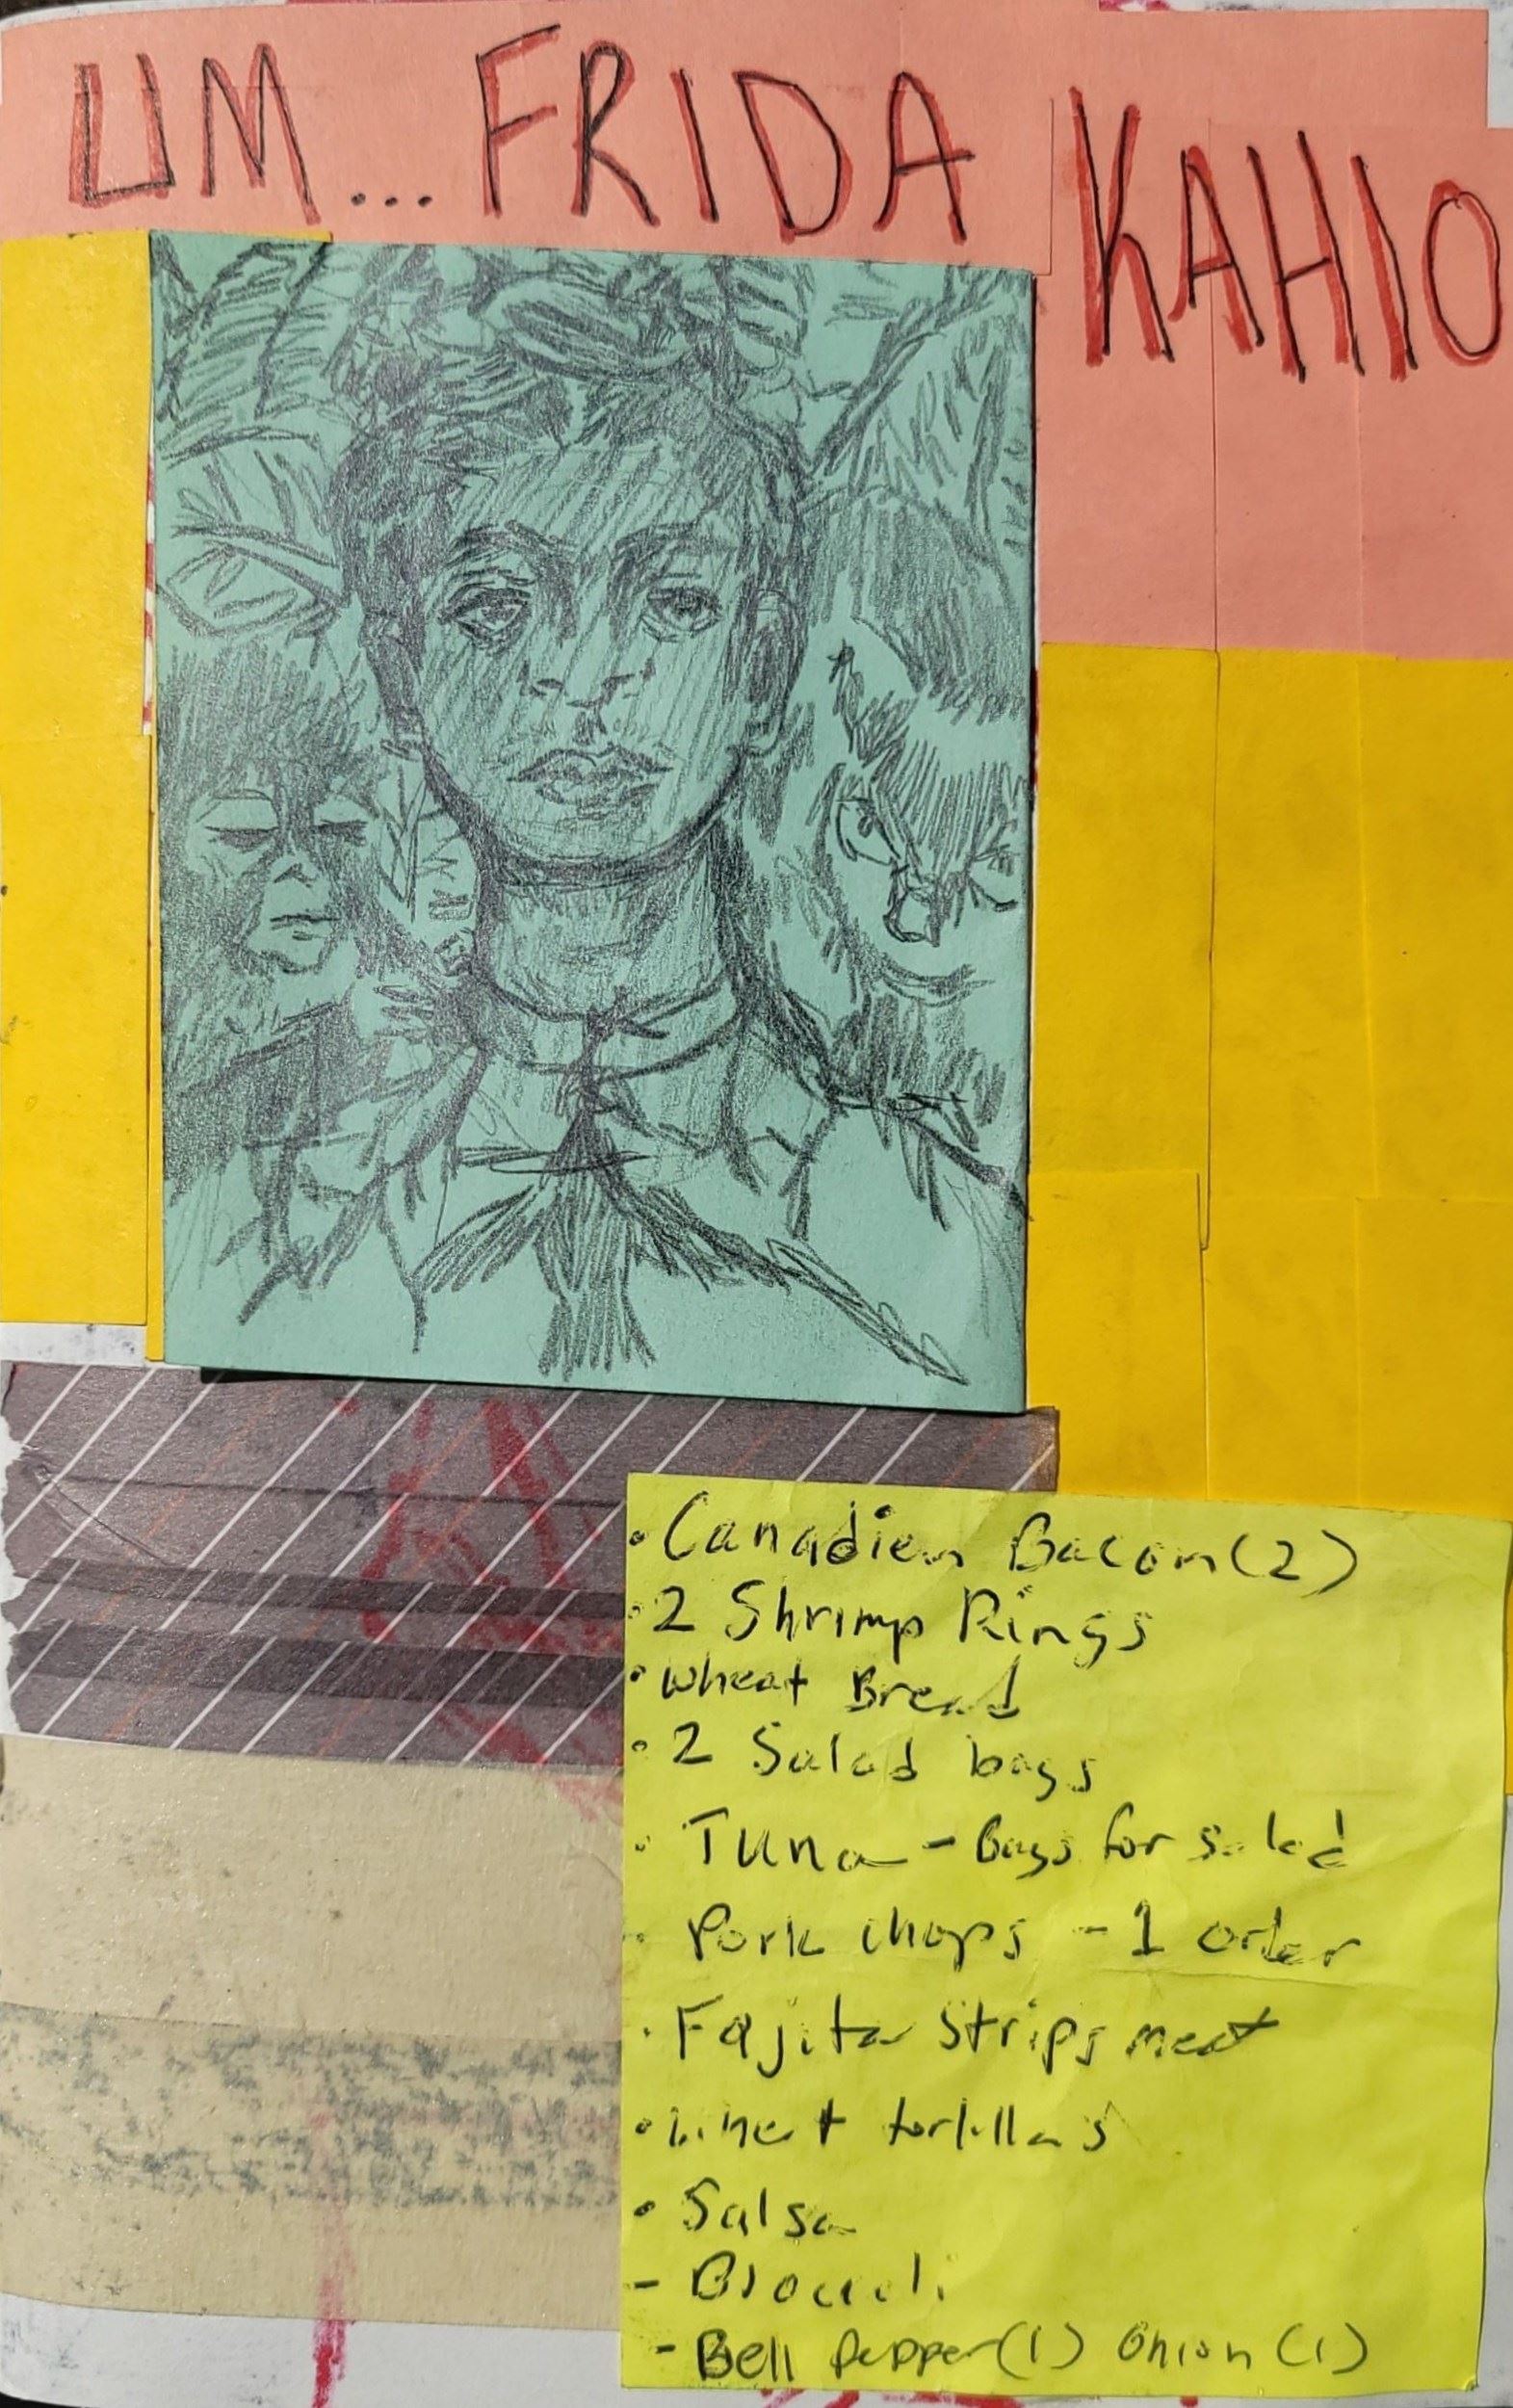 UM... FRIDA KAHlO
• Canadien Bacon (2)
• 2 Shrimp Rings
• Wheat Bread
• 2 Salad bags
• Tuna - Bags for salad
• Pork chops - 1 order
• Fajita Strips meat
• Wheat tortillas
• Salsa
- Broccoli
- Bell Pepper (1) Onion (1)